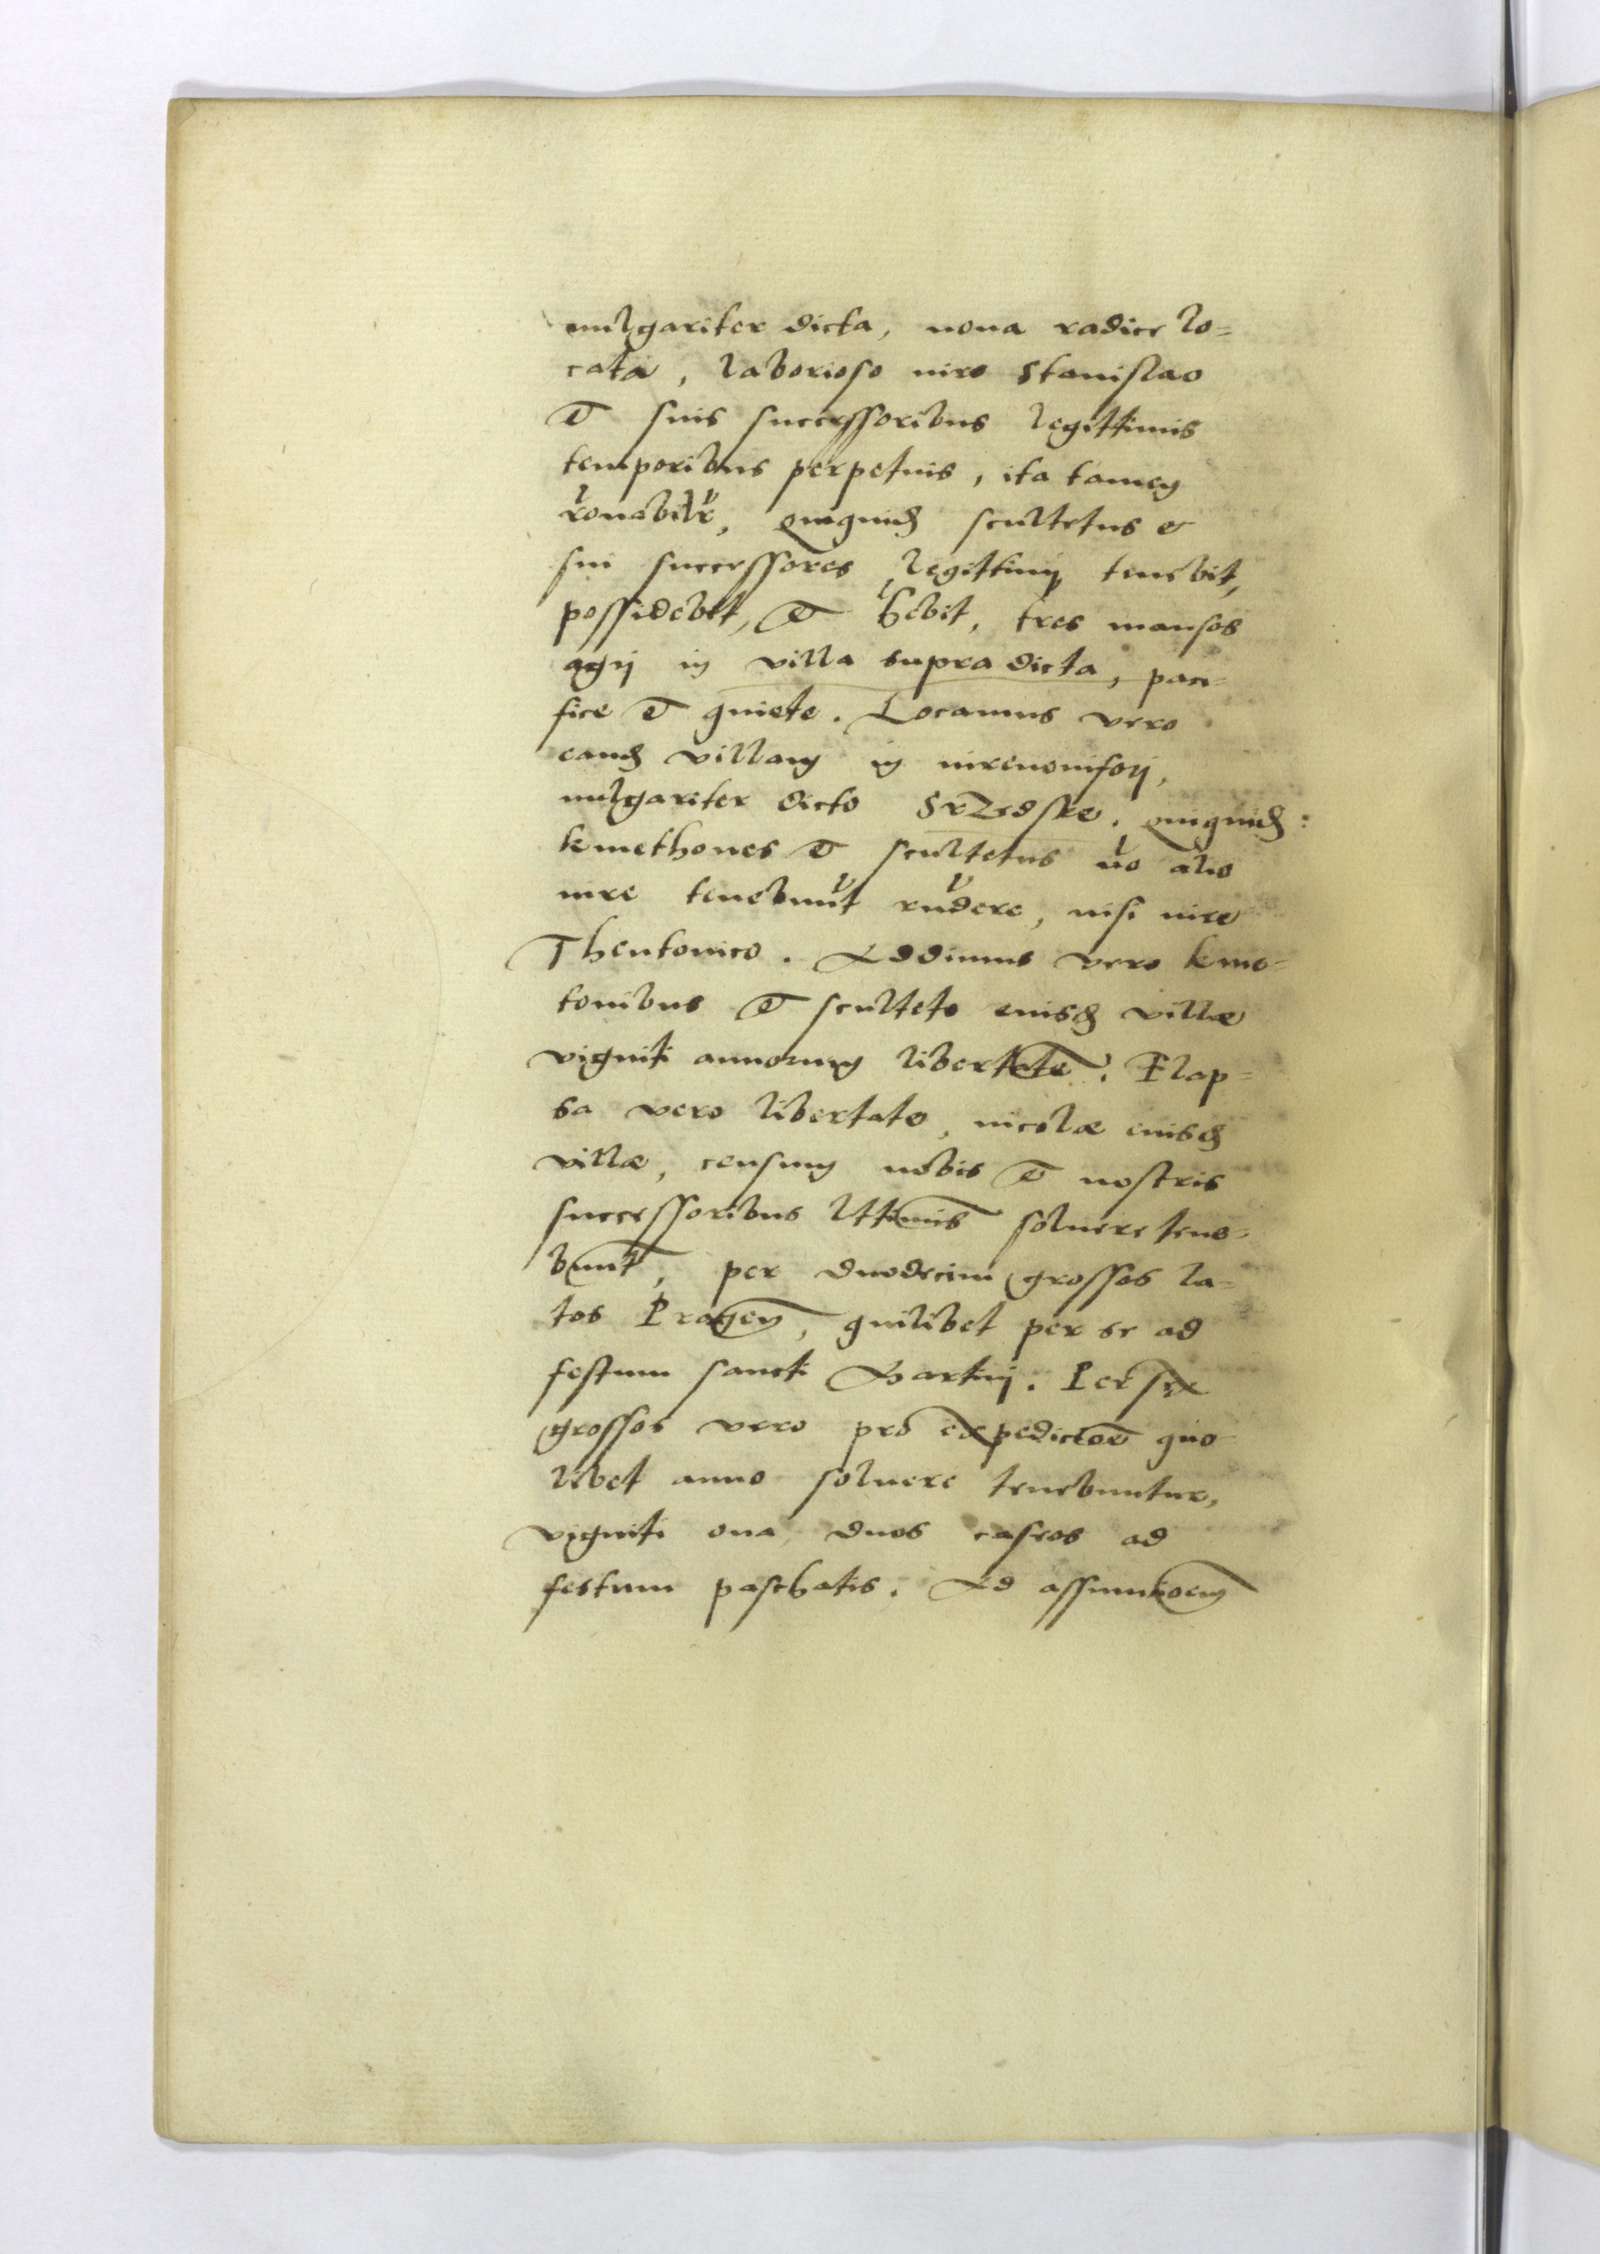 uulgariter dicta, noua radice lo=
cata, laborioso uiro Stanislao
et suis successoribus legittimis
temporibus perpetuis, ita tamen
ronabilr, quiquid scultetus et
sui successores legittimij tenebit,
possidebit, et hebit, tres mansos
agij in villa supra dicta, paci=
fice et quiete. Locamus vero
eand villam in iure nouifori,
uulgariter dicto Srzedske. quiquid:
kmethones et scultetus uo alio
iure tenebunt rndere, nisi iure
Theutonico. Addimus vero kme=
tonibus et sculteto euisd villæ
viginti annorum libertatem. Elap=
sa vero libertate, incolæ euisd
villæ, censum nobis et nostris
successoribus lttimis soluere tene=
bunt, per duodecim grossos la=
tos Pragen, quilibet per se ad
festum sancti Martini. Per sex
grossos vero pro expedictoe quo=
libet anno soluere tenebuntur,
viginti oua, duos caseos ad
festum paschatis. Ad assumtioem